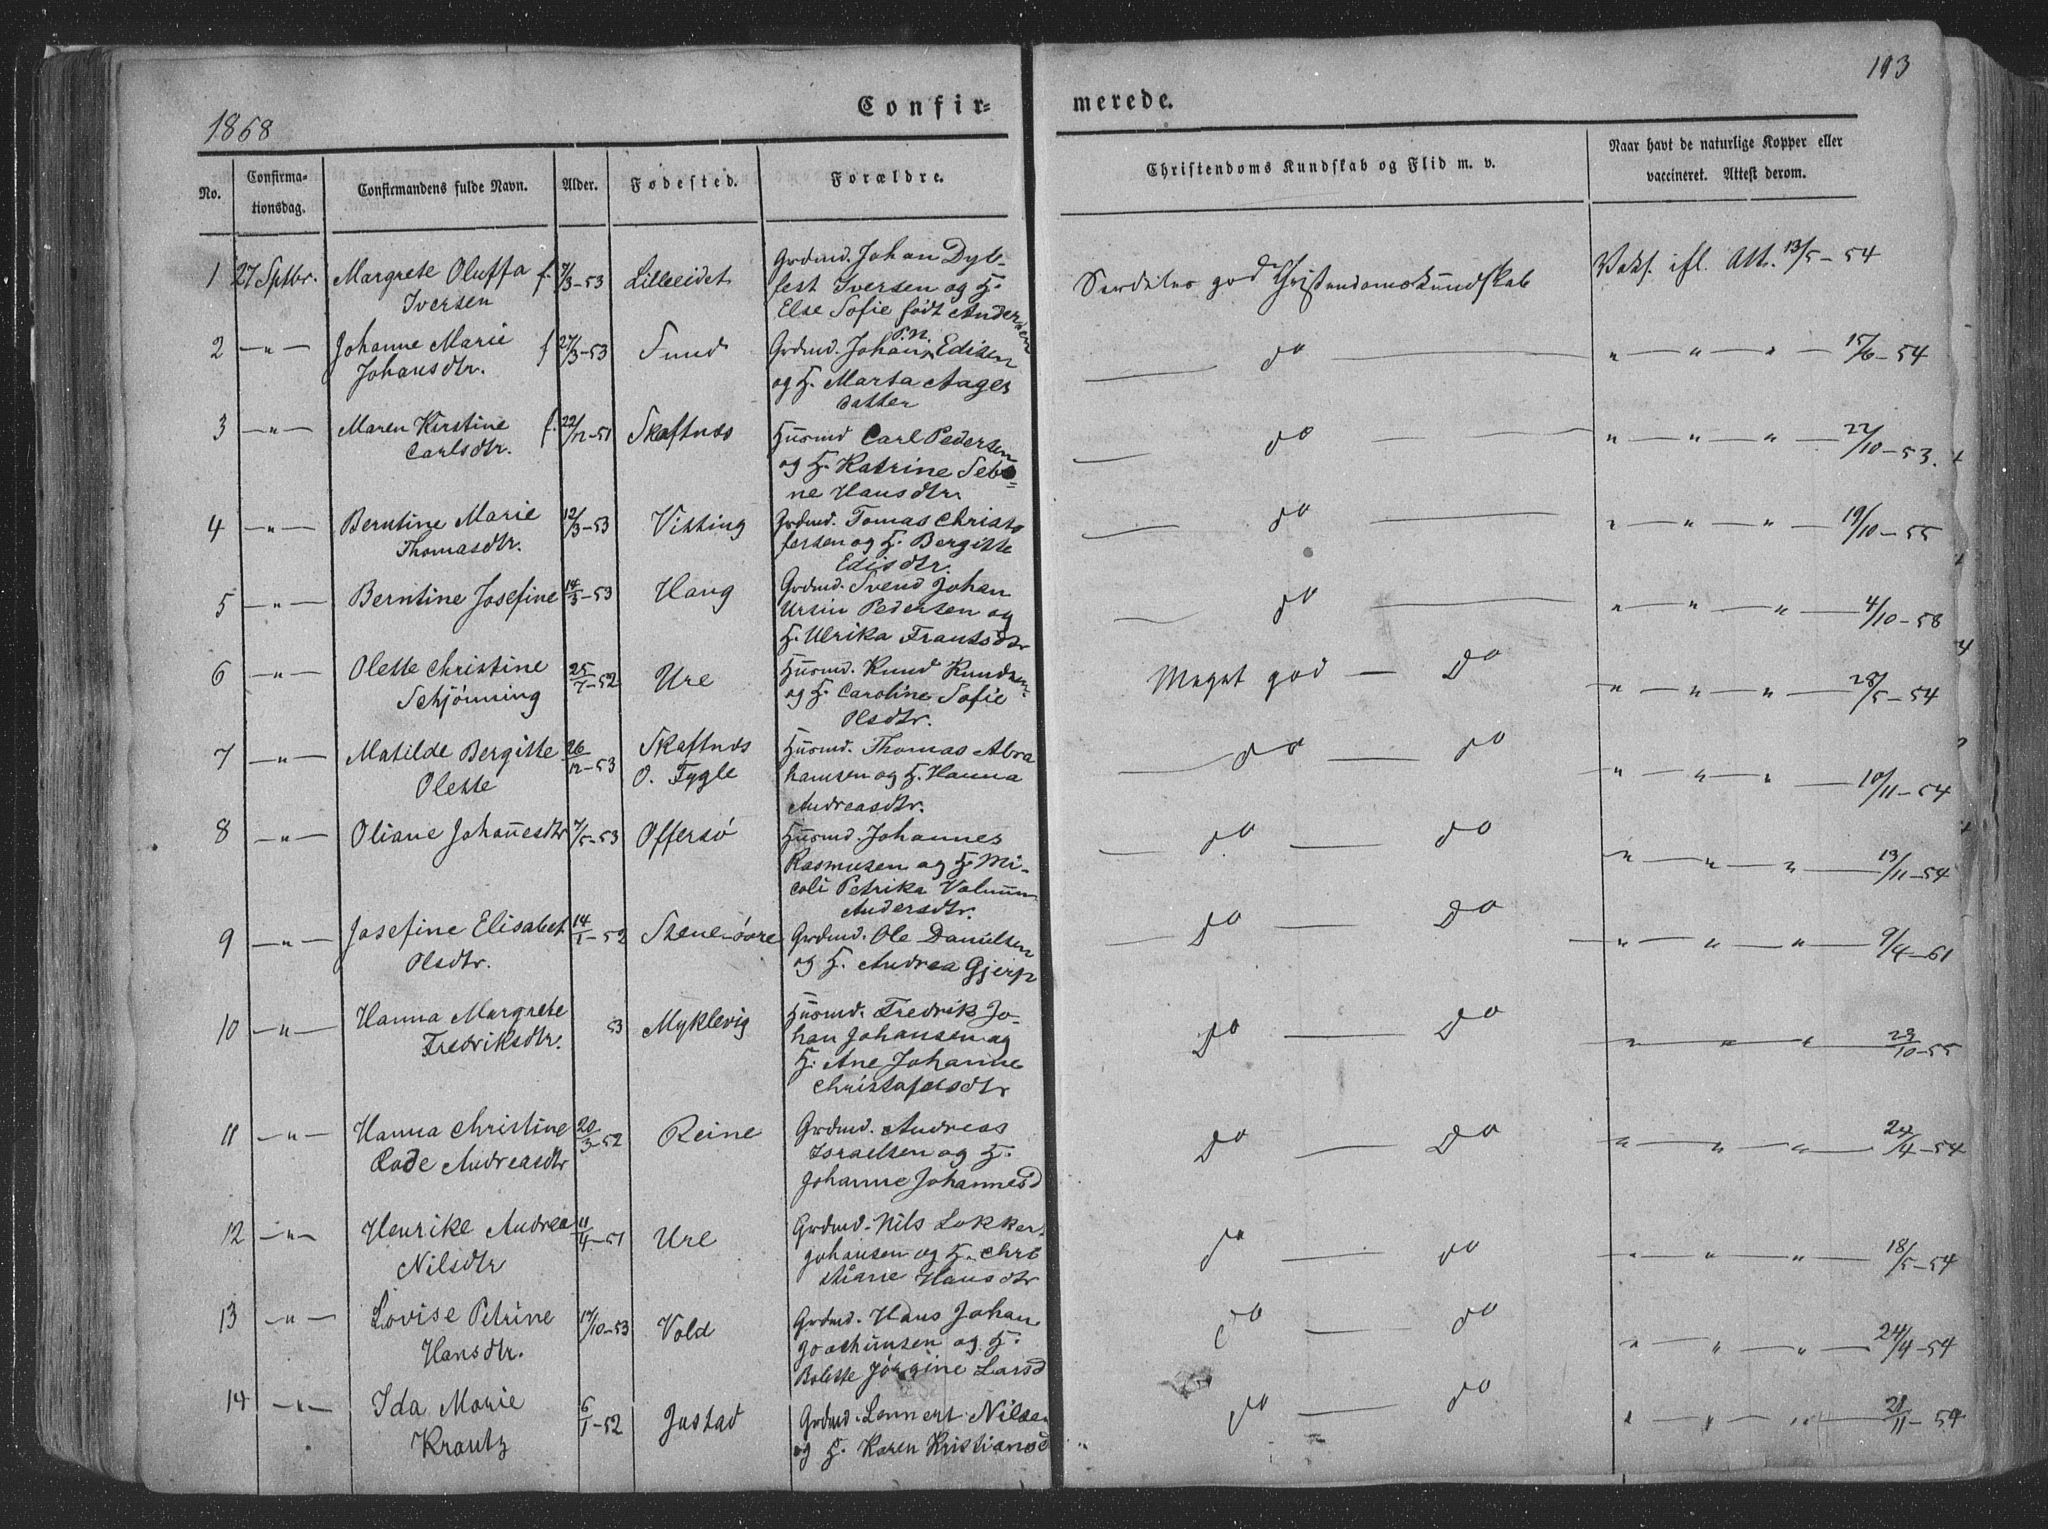 193
Confir=
merede.
1868
No.
Confirma-
tionsdag.
Confirmandens fulde Navn.
Alder.
Fødested.
Forældre.
Christendoms Kundskab og Flid m. v.
Naar havt de naturlige Kopper eller
vaccineret. Attest derom.
1 27 Sptbr. Margrete Oluffa f. 7/3-53 Lilleeidet Grdmd. Johan Dyb= Særdeles god Christendomskundskab Vaks. ifl. Att. 13/5-54
Iversen fest Iversen og H.
Else Sofie født Andersen
2 —"— Johanne Marie f 27/3-53 Sund Grdmd. Johan P.N. Edisen do " — " — " — 15/6-54
Johansdtr. og H. Marta Aages
datter
3 —"— Maren Kirstine f. 22/12-51 Skaftnæs Husmd Carl Pedersen do " — " — " — 22/10-53.
Carlsdtr. og H. Katrine Sebo=
ne Hansdtr.
4 —"— Berntine Marie 12/3-53 Vitting Grdmd. Tomas Christo do " — " — " — 19/10-55
Thomasdtr. fersen og H. Bergitte
Edisdtr.
5 —"— Berntine Josefine 14/3-53 Haug Grdmd. Svend Johan do " — " — " — 4/10-58
Ursin Pedersen og
H. Ulrika Frantsdtr
6 —"— Olette Christine 25/7-52 Ure Husmd. Knud Knudsen Meget god — Do " — " — " — 28/5-54
Schjønning og H. Caroline Sofie
Olsdtr.
7 —"— Matilde Bergitte 26/12-53 Skaftnæs Husmd. Thomas Abra do — do " — " — " — 10/11-54
Olette O. Fygle hamsen og H. Hanna
Andreasdtr.
8 —"— Oliane Johannesdtr 7/5-53 Offersø Husmd. Johannes do — do " — " — " — 13/11-54
Rasmusen og H. Mi-
coli Petrika
Andersdtr.
9 —"— Josefine Elisabet 14/1-52 Grdmd. Ole Danielsen Do — Do " — " — " — 9/4-61
Olsdtr. og H. Andrea Gjerp
10 —"— Hanna Margrete 53 Myklevig Husmd. Fredrik Jo- Do — Do " — " — " — 23/10-55
Fredriksdtr. han Johansen og
H. Ane Johanne
Christofelsdtr
11 —"— Hanna Christine 20/3-52 Reine Grdmd. Andreas Do — Do " — " — " — 24/4-54
Rode Andreasdtr Israelsen og H.
Johanne Johannesd
12 —"— Henrike Andrea 11/4-51 Ure Grdmd. Nils Lokkert do — do " — " — " — 18/5-54
Nilsdtr Johansen og H. Chri
stiane Hansdtr
13 —"— Lovise Petrine 17/10-53 Vold Grdmd. Hans Johan do — do " — " — " — 24/4-54
Hansdtr. Joachimsen og H.
Bolette Jørgine Larsd
14 —"— Ida Marie 6/1-52 Justad Grdmd. Lennert Nilsen do — do " — " — " — 21/11-54
Krantz og H. Karen Kristiansd